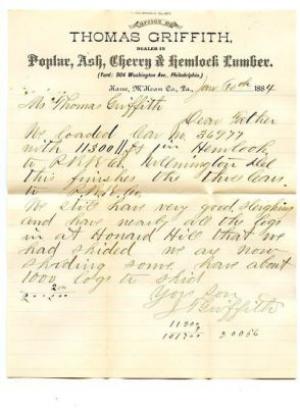 OFFICE OF
THOMAS GRIFFITH,
DEALER IN
Poplar, Ash, Cherry & Hemlock Lumber.
(Yard: 904 Washington Ave., Philadelphia.)
Kane, McKean Co., Pa., Jan 1884
Mr Thomas Griffith
Dear Father
We loaded Car No. 36977
with 11300 ft 1 in Hemlock
to Wilmington Del
this finishes the three cars
to
We still have very good sleighing
and have nearly all the logs
in at Honard Hill that we
had skided we are now
skiding some have about
1000 logs to skid
Your Son
Griffith